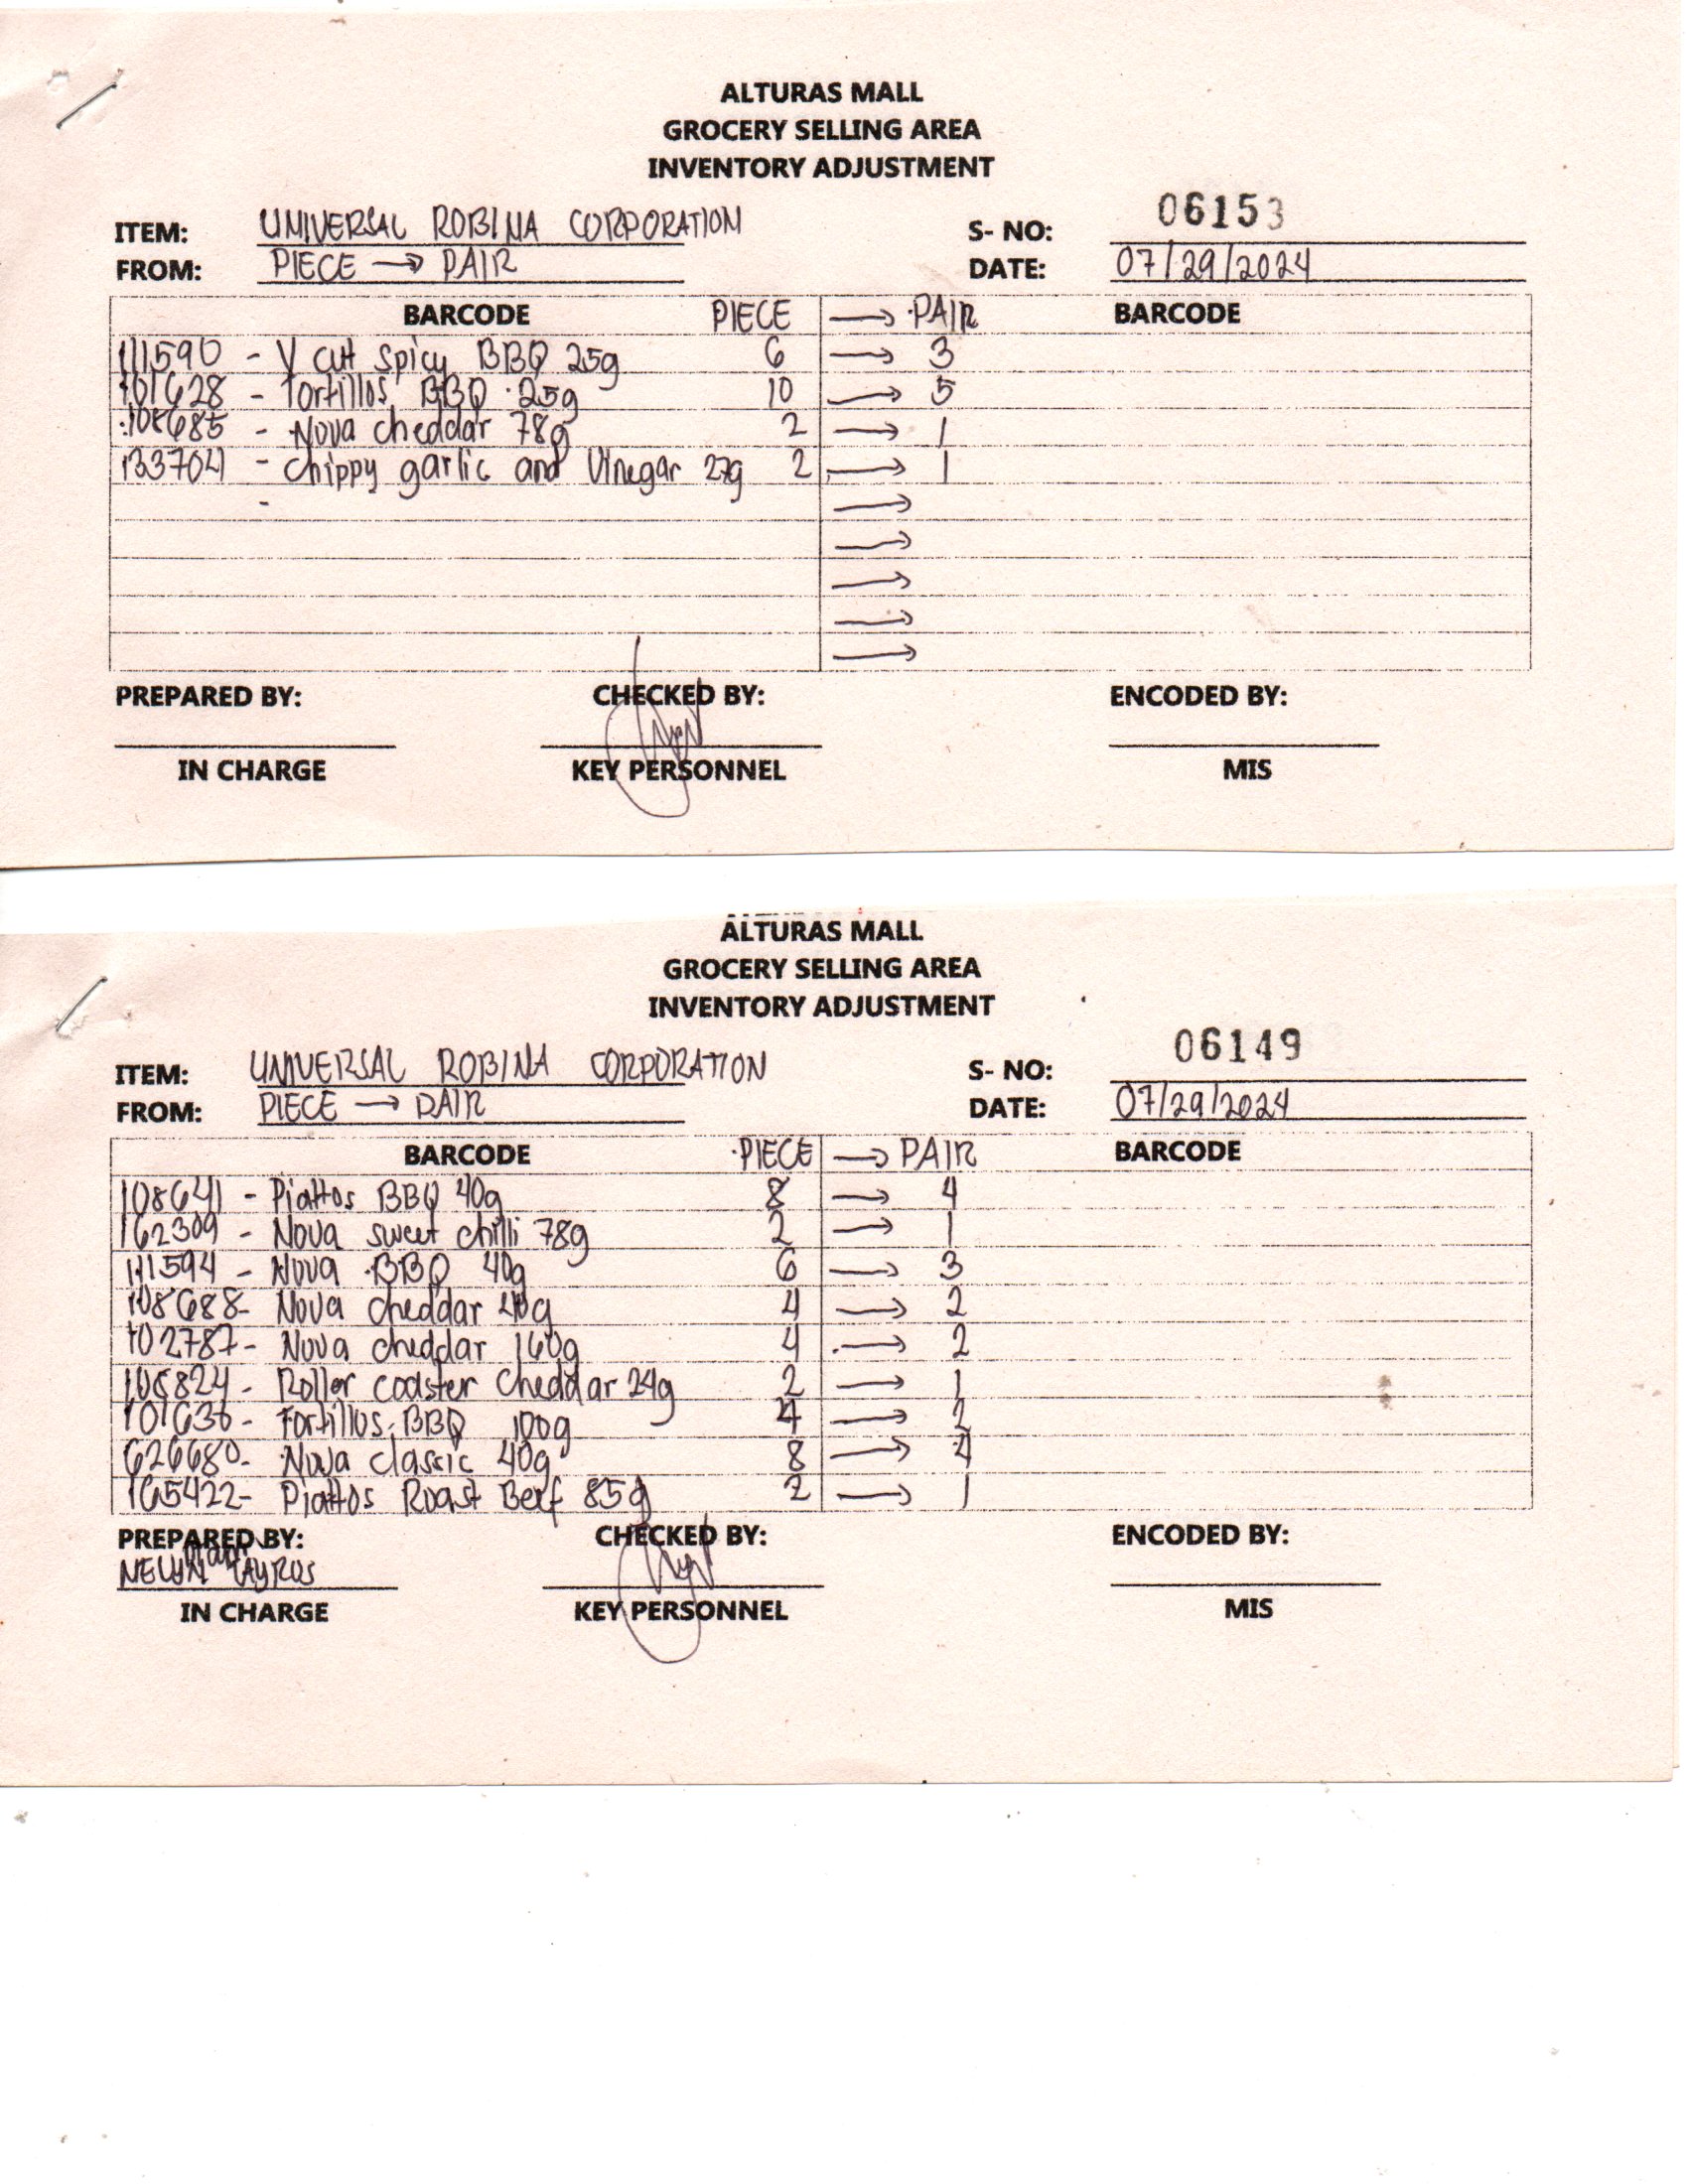 ALTURAS MALL
GROCERY SELLING AREA
INVENTORY ADJUSTMENT
ITEM: UNIVERSAL ROBINA CORPORATION S- NO: 06153
FROM: PIECE → PAIR DATE: 07/29/2024
BARCODE PIECE → PAIR BARCODE
111590 - V cut spicy BBQ 25g 6 → 3
101628 - Tortillos BBQ 25g 10 → 5
108685 - Nova cheddar 78g 2 → 1
133704 - Chippy garlic and Vinegar 27g 2 → 1
- →
→
→
→
→
PREPARED BY: CHECKED BY: ENCODED BY:
IN CHARGE KEY PERSONNEL MIS
ALTURAS MALL
GROCERY SELLING AREA
INVENTORY ADJUSTMENT
ITEM: UNIVERSAL ROBINA CORPORATION S- NO: 06149
FROM: PIECE → PAIR DATE: 07/29/2024
BARCODE PIECE → PAIR BARCODE
108641 - Piattos BBQ 40g 8 → 4
162309 - Nova sweet chilli 78g 2 → 1
111594 - Nova BBQ 40g 6 → 3
108688- Nova cheddar 40g 4 → 2
102787- Nova cheddar 160g 4 → 2
108824- Roller coaster Cheddar 24g 2 → 1
101636- Tortillos BBQ 100g 4 → 2
626680- Nova classic 40g 8 → 4
165422- Piattos Roast Beef 85g 2 → 1
PREPARED BY: CHECKED BY: ENCODED BY:
NELYN TAYROS
IN CHARGE KEY PERSONNEL MIS